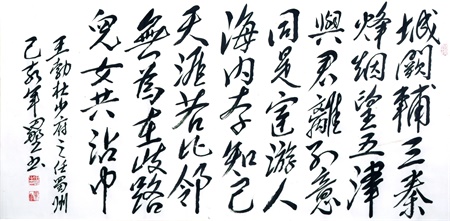 城闕輔三秦
烽烟望五津
與君離別意
同是宦游人
海内存知己
天涯若比鄰
無為在歧路
兒女共沾巾
王勃杜少府之任蜀州
己亥年 书